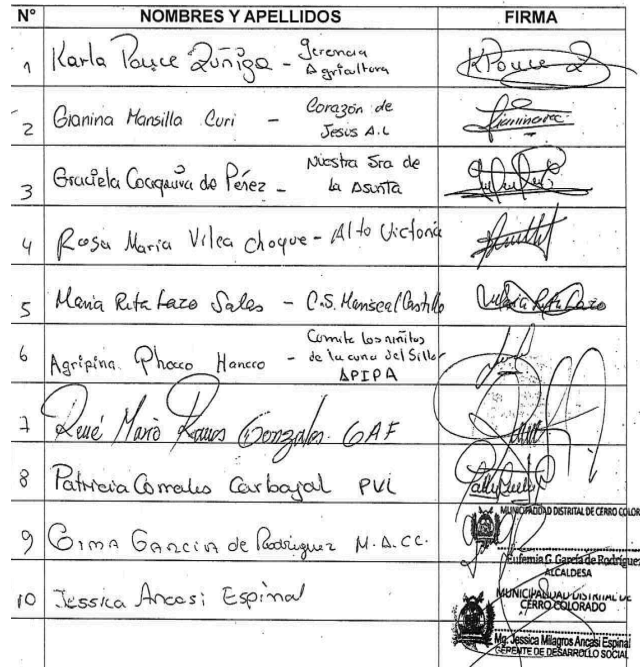 N° NOMBRES Y APELLIDOS FIRMA
1 Karla Ponce Zúñiga - Gerencia Agricultura KPonce Z
2 Gianina Mansilla Curi - Corazón de Jesus A.L
3 Graciela Coaquira de Pérez - Nuestra Sra de la Asunta
4 Rosa Maria Vilca Choque - Alto Victoria
5 Maria Rita Lazo Sales - C.S. Mariscal Castillo Maria Rita Lazo
6 Agripina Phocco Hancco - Comite los niñitos de la cuna del Sillar APIPA
7 René Mario Ramos Gonzales. GAF
8 Patricia Cornelio Carbajal PVL
MUNICIPALIDAD DISTRITAL DE CERRO COLOR
9 García de Rodriguez M.D.CC.
Eufemia G. García de Rodríguez
ALCALDESA
10 Jessica Ancasi Espinal
MUNICIPALIDAD DISTRITAL DE
CERRO COLORADO
Mg. Jessica Milagros Ancasi Espinal
GERENTE DE DESARROLLO SOCIAL